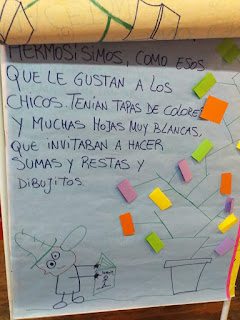 HERMOSÍSIMOS, COMO ESOS
QUE LE GUSTAN A LOS
CHICOS. TENÍAN TAPAS DE COLORES
Y MUCHAS HOJAS MUY BLANCAS,
QUE INVITABAN A HACER
SUMAS Y RESTAS Y
DIBUJITOS.